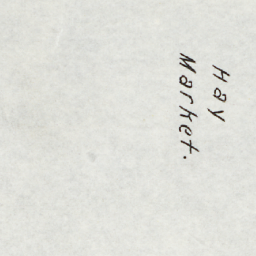 Hay
Market.